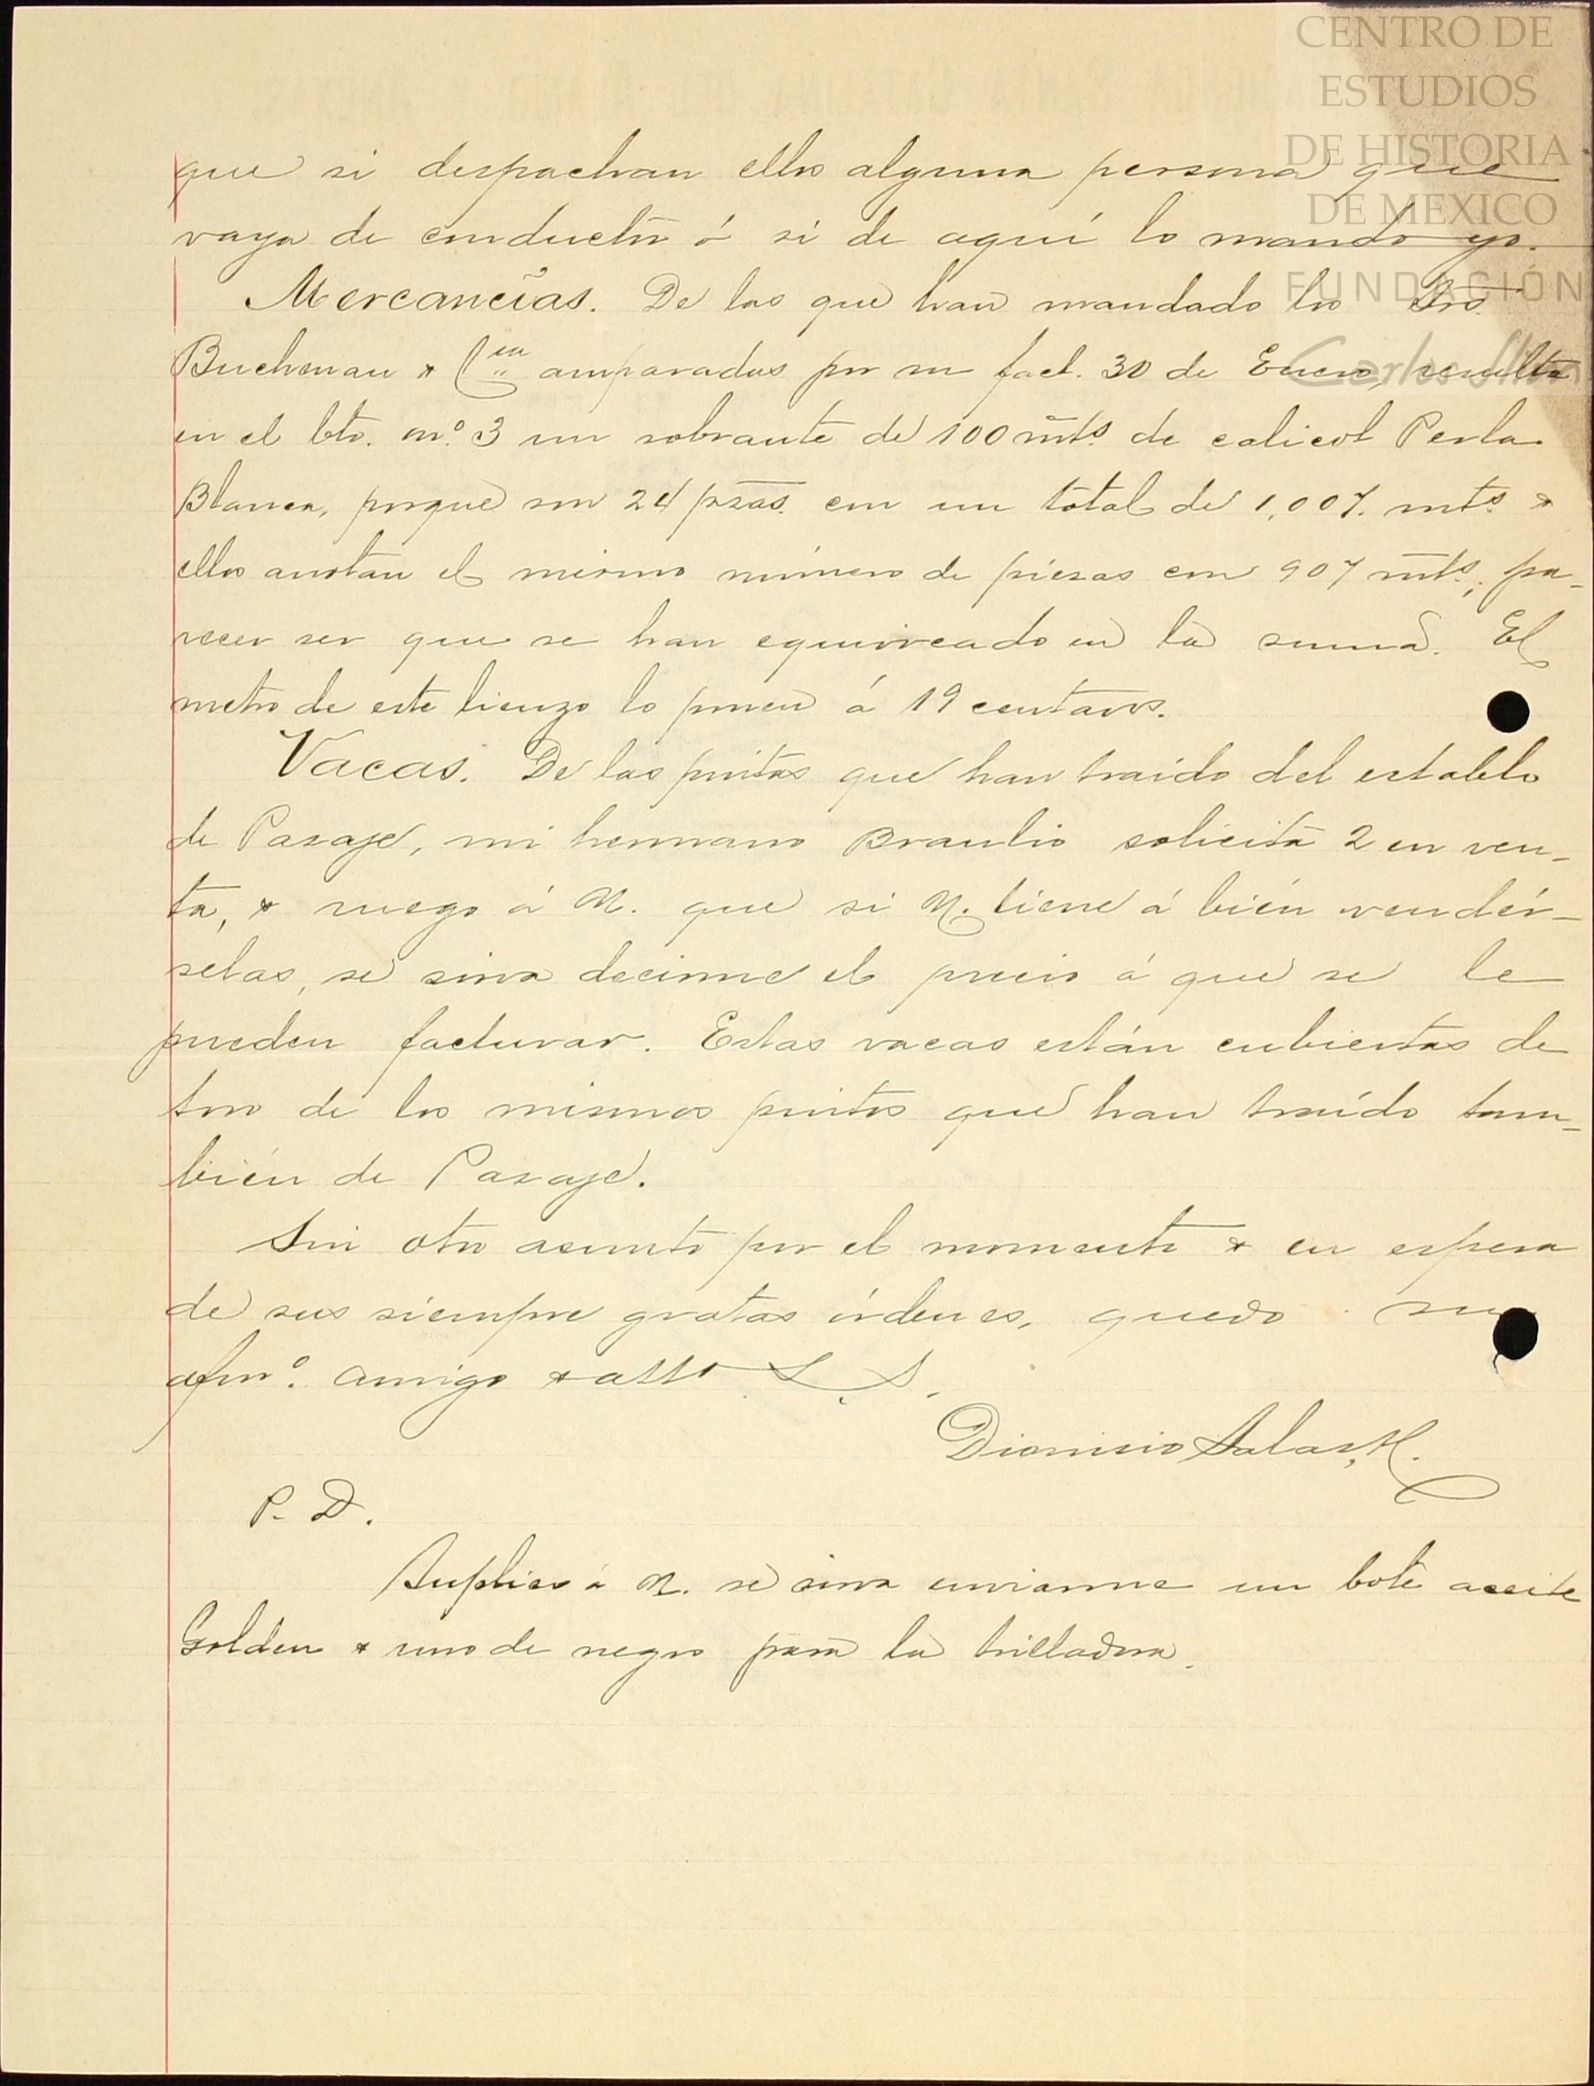 CENTRO DE
ESTUDIOS
DE HISTORIA
DE MEXICO
FUNDACIÓN
Carlos Slim
que si despachan ellos alguna persona que
vaya de conductor ó si de aquí lo mando yo.
Mercancías. De las que han mandado los Srs.
Buchenau & Cía amparadas por su fact. 30 de Enero, resulta
en el bto. no. 3 un sobrante de 100 mts. de calicot Perla
Blanca, porque son 24 pzas. con un total de 1,007. mts. &
ellos anotan el mismo número de piezas con 907 mts.; pa-
recer ser que se han equivocado en la suma. El
metro de este lienzo lo ponen á 19 centavos.
Vacas. De las pintas que han traído del establo
de Pasaje, mi hermano Braulio solicita 2 en ven-
ta, & ruego á U. que si U. tiene á bién vendér-
selas, se sirva decirme el precio á que se le
pueden facturar. Estas vacas están cubiertas de
toro de los mismos pintos que han traído tam-
bién de Pasaje.
Sin otro asunto por el momento & en espera
de sus siempre gratas órdenes, quedo su
afmo. amigo & atto S. S.
Dionisio Salas, H.
P. D.
Suplico á U. se sirva enviarme un bote aceite
Golden & uno de negro para la trilladora.